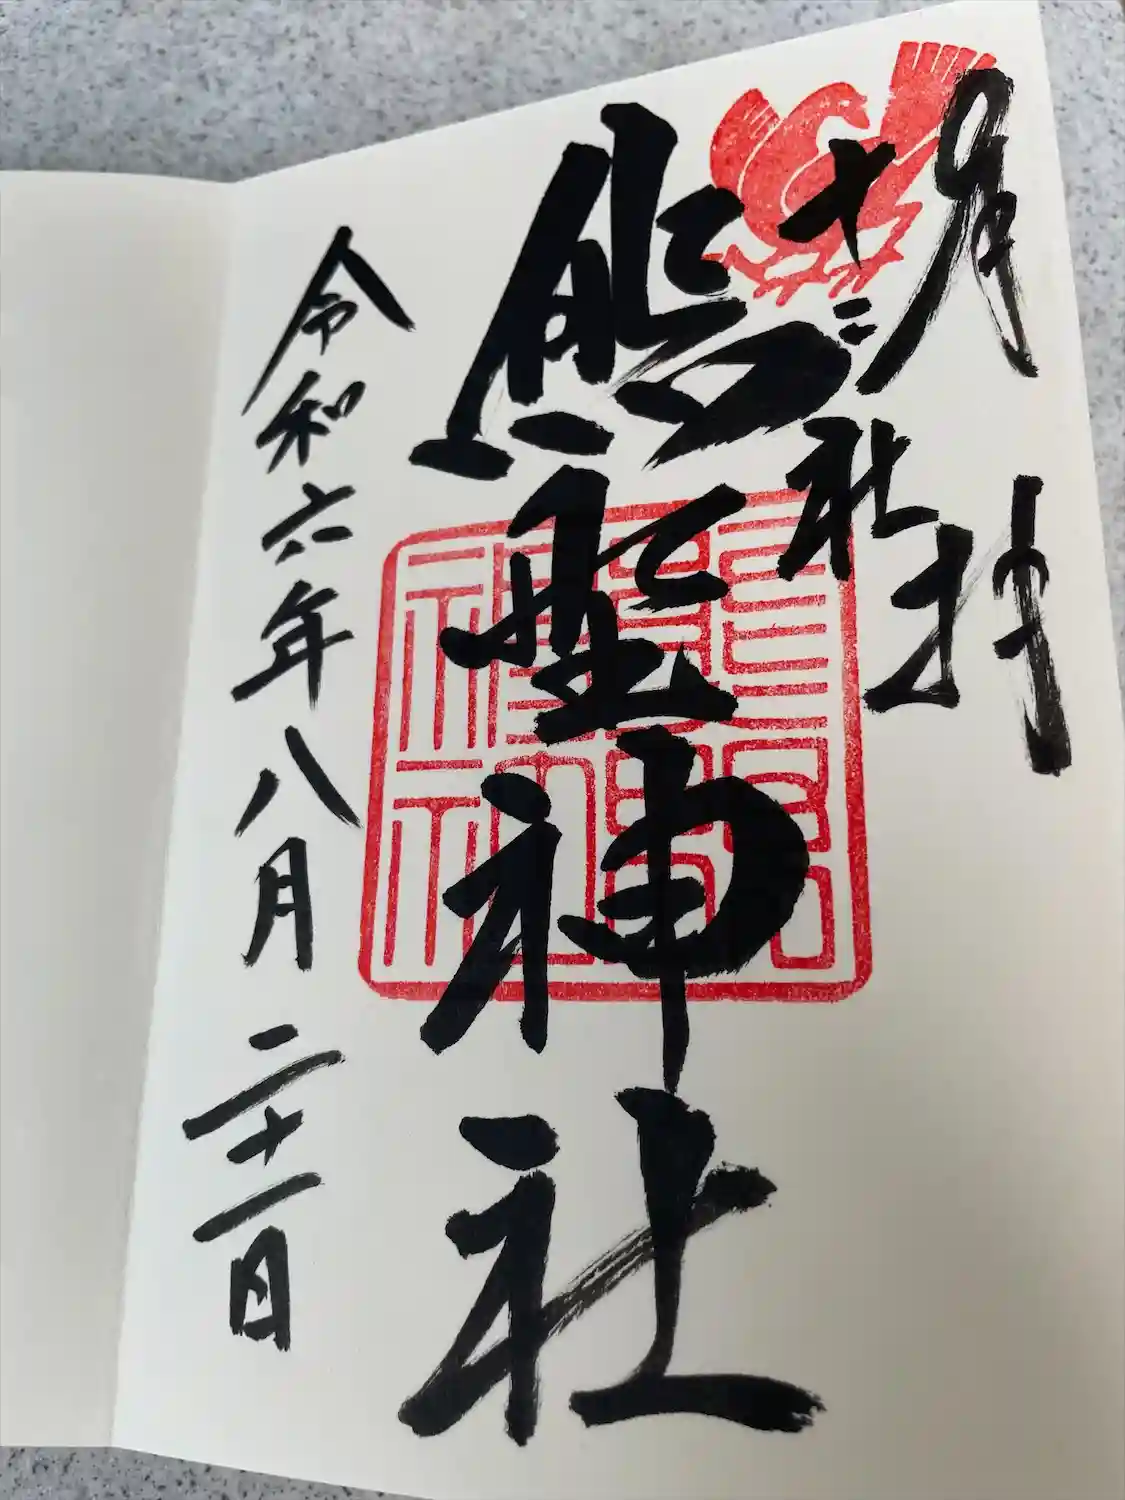 奉拝
十二社
熊野神社
令和六年八月二十一日